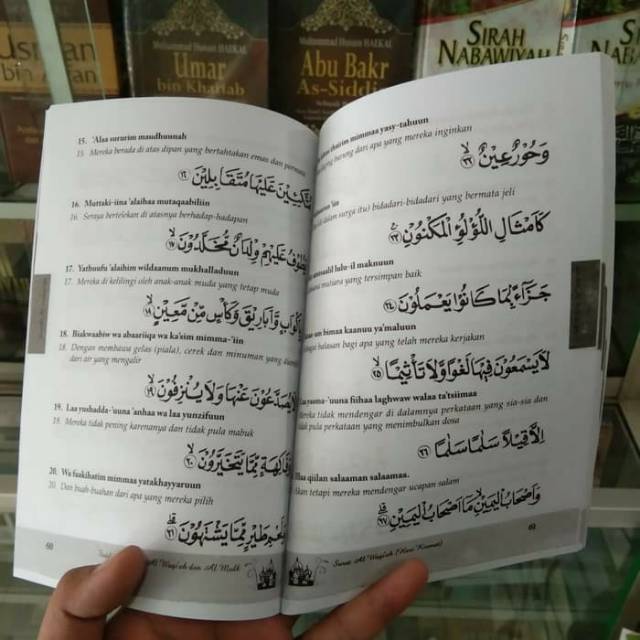 Usman
bin Affan
Muhammad Husain HAEKAL
Umar
bin Khattab
Muhammad Husain HAEKAL
Abu Bakr
As-Siddiq
SIRAH
NABAWIYAH
S
NABA
15. 'Alaa sururim maudhuunah
15. Mereka berada di atas dipan yang bertahtakan emas dan permata
مُتَّكِئِيْنَ عَلَيْهَا مُتَقَابِلِيْنَ ١٦
16. Muttaki-iina 'alaihaa mutaqaabiliin
16. Seraya bertelekan di atasnya berhadap-hadapan
يَطُوْفُ عَلَيْهِمْ وِلْدَانٌ مُّخَلَّدُوْنَ ١٧
17. Yathuufu 'alaihim wildaanum mukhalladuun
17. Mereka di kelilingi oleh anak-anak muda yang tetap muda
بِاَكْوَابٍ وَّاَبَارِيْقَ وَكَأْسٍ مِّنْ مَّعِيْنٍ ١٨
18. Biakwaabiw wa abaariiqa wa ka'sim mimma-'iin
18. Dengan membawa gelas (piala), cerek dan minuman yang
dari air yang mengalir
لَا يُصَدَّعُوْنَ عَنْهَا وَلَا يُنْزِفُوْنَ ١٩
19. Laa yushadda-'uuna 'anhaa wa laa yunzifuun
19. Mereka tidak pening karenanya dan tidak pula mabuk
وَفَاكِهَةٍ مِّمَّا يَتَخَيَّرُوْنَ ٢٠
20. Wa faakihatim mimmaa yatakhayyaruun
20. Dan buah-buahan dari apa yang mereka pilih
وَلَحْمِ طَيْرٍ مِّمَّا يَشْتَهُوْنَ ٢١
60
Al Waqi'ah dan Al Mulk
thairim mimmaa yasy-tahuun
burung dari apa yang mereka inginkan
وَحُوْرٌ عِيْنٌ ٢٢
'iin
dalam surga itu) bidadari-bidadari yang bermata jeli
كَاَمْثَالِ اللُّؤْلُؤِ الْمَكْنُوْنِ ٢٣
amtsaalil lu'lu-il maknuun
mutiara yang tersimpan baik
جَزَآءً بِمَا كَانُوْا يَعْمَلُوْنَ ٢٤
bimaa kaanuu ya'maluun
balasan bagi apa yang telah mereka kerjakan
لَا يَسْمَعُوْنَ فِيْهَا لَغْوًا وَّلَا تَأْثِيْمًا ٢٥
Laa yasma-'uuna fiihaa laghwaw walaa ta'tsiimaa
Mereka tidak mendengar di dalamnya perkataan yang sia-sia dan
tidak pula perkataan yang menimbulkan dosa
اِلَّا قِيْلًا سَلٰمًا سَلٰمًا ٢٦
Illaa qiilan salaaman salaamaa.
Akan tetapi mereka mendengar ucapan salam
وَاَصْحَابُ الْيَمِيْنِ مَآ اَصْحَابُ الْيَمِيْنِ ٢٧
61
Surat Al Waqi'ah (Hari Kiamat)